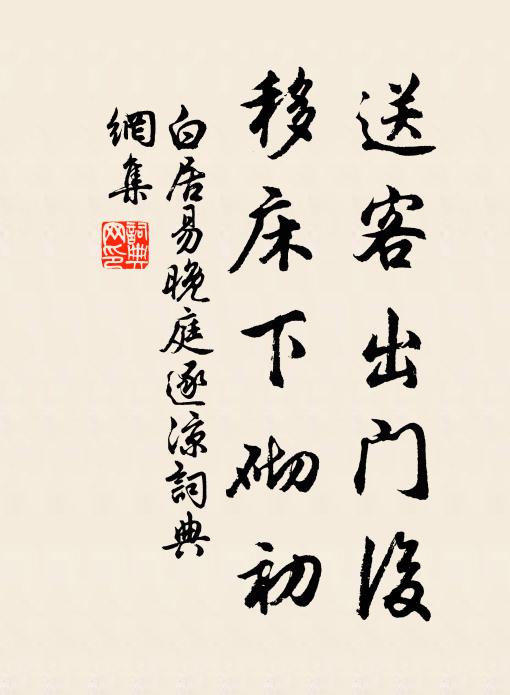 送客出门後
移床下砌初
白居易晚庭逐凉詞典
網集
詞典
网印